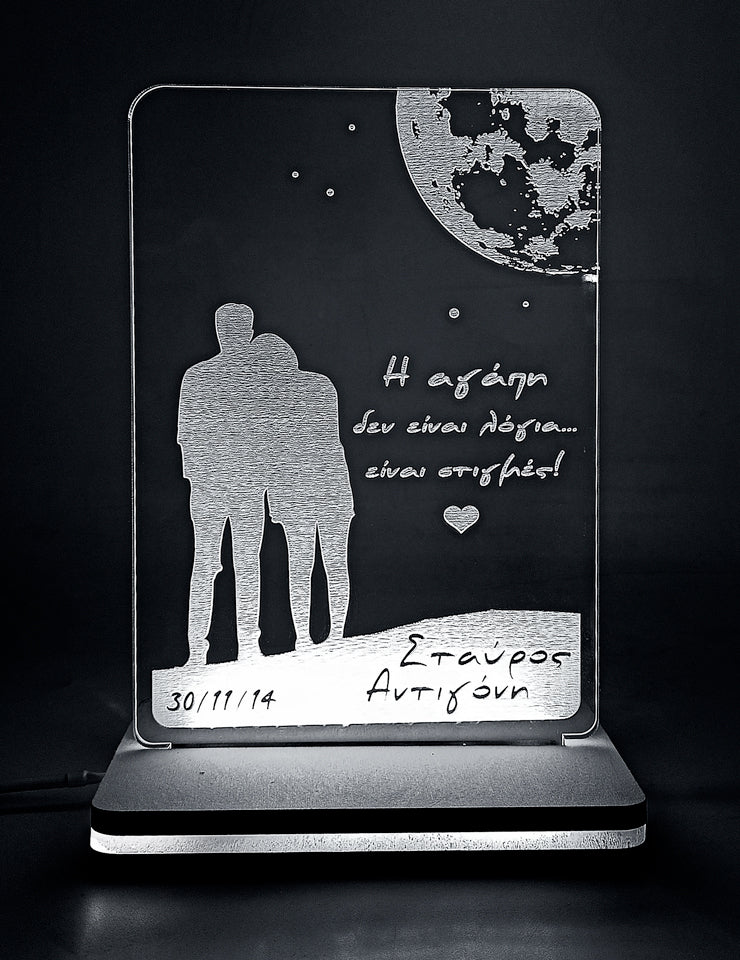 Η αγάπη
δεν είναι λόγια...
είναι στιγμές!
Σταύρος
Αντιγόνη
30/11/14